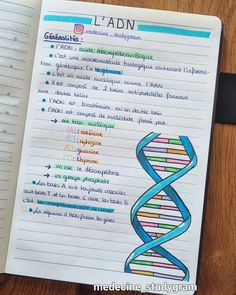 L'ADN
medecine_studygram
Généralités:
• L'ADN: acide désoxyribonucléique
• c'est une macromolécule biologique contenant l'informa-
tion génétique (= le génome)
• c'est un acide nucléique comme l'ARN
• il est composé de 2 brins antiparallèles formant
une double hélice
• l'ADN est bicaténaire ou en double brin
• l'ADN est composé de nucléotide formé par
→ une base nucléique
(A): adénine
(C): cytosine
(G): guanine
(T): thymine
→ un ose: le désoxyribose
→ un groupe phosphate
• Les bases A sont toujours associées
aux bases T et les bases C avec les bases G
c'est la complémentarité des bases
• Les régions d'ADN les gènes
medecine_studygram